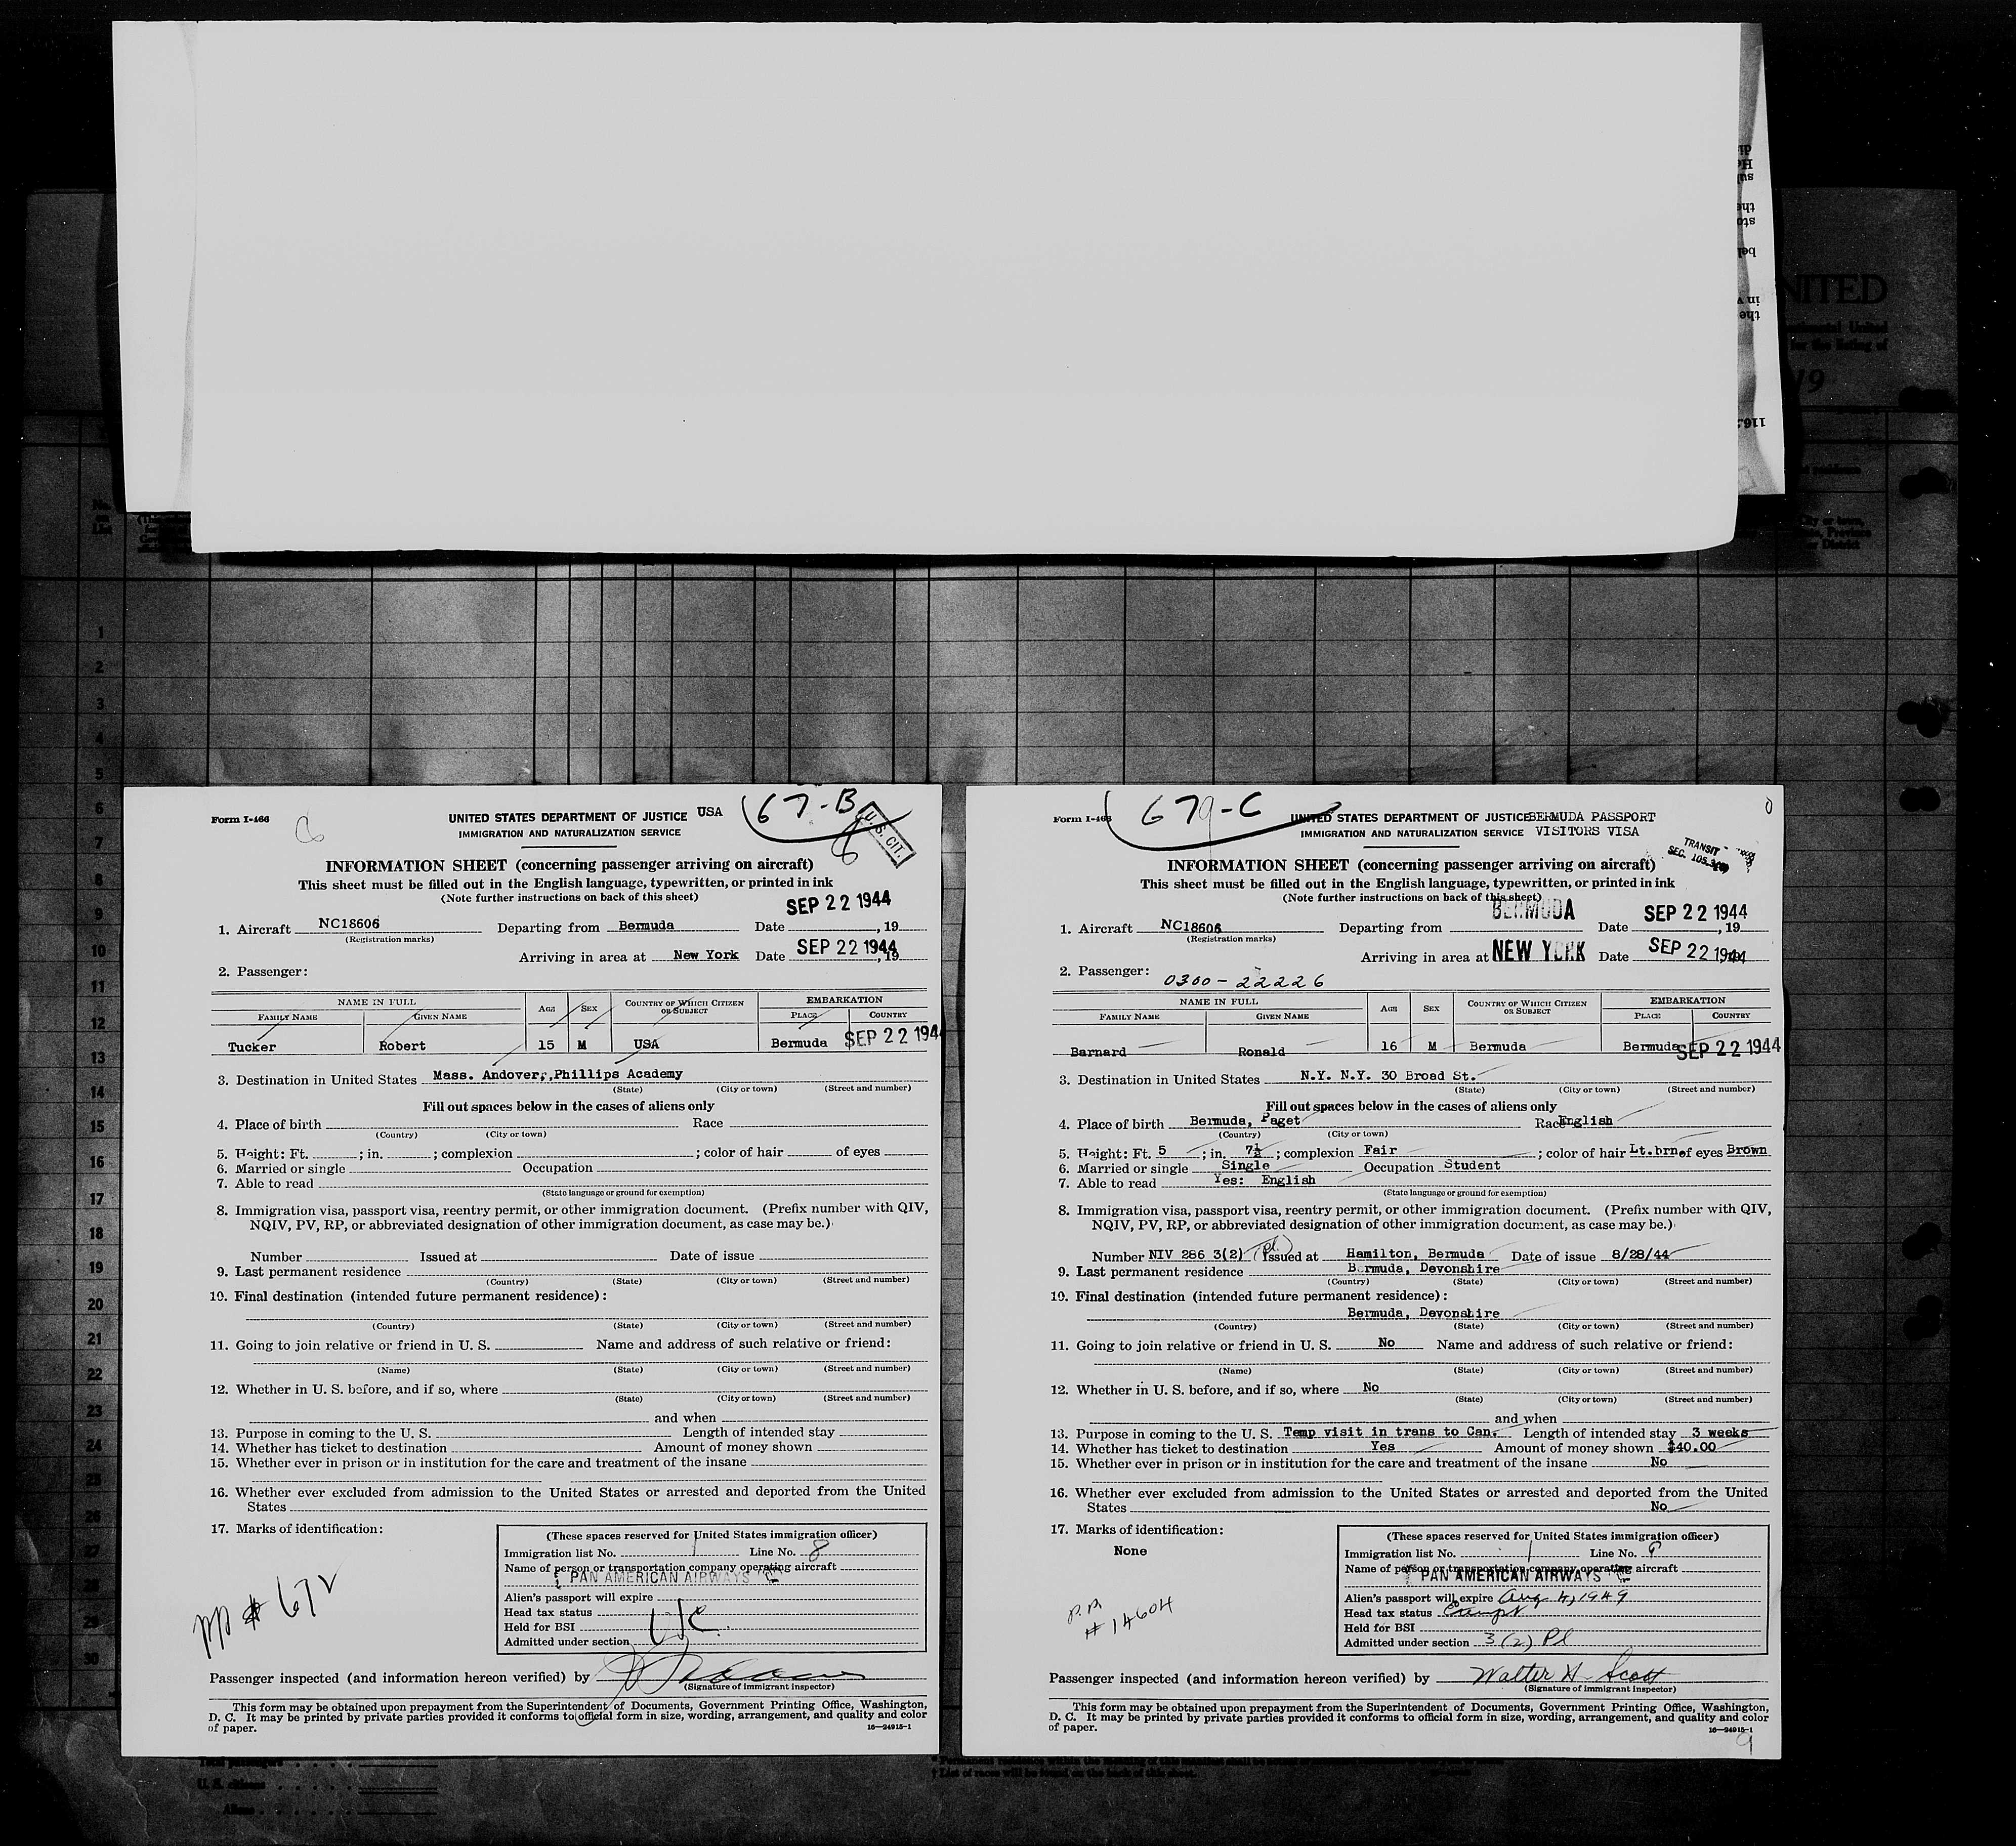 UNITED
Continental United
for the listing of
19
1
2
3
4
5
6
7
8
9
10
11
12
13
14
15
16
17
18
19
20
21
22
23
24
25
26
27
28
29
30
Form I-466
UNITED STATES DEPARTMENT OF JUSTICE USA
67-B
U. S. CIT.
IMMIGRATION AND NATURALIZATION SERVICE
8
INFORMATION SHEET (concerning passenger arriving on aircraft)
This sheet must be filled out in the English language, typewritten, or printed in ink
(Note further instructions on back of this sheet)
SEP 22 1944
1. Aircraft NC18606 Departing from Bermuda Date , 19
(Registration marks)
Arriving in area at New York Date SEP 22 1944, 19
2. Passenger:
NAME IN FULL AGE SEX COUNTRY OF WHICH CITIZEN OR SUBJECT EMBARKATION
FAMILY NAME GIVEN NAME PLACE COUNTRY
Tucker Robert 15 M USA Bermuda SEP 22 1944
3. Destination in United States Mass. Andover,,Phillips Academy
(State) (City or town) (Street and number)
Fill out spaces below in the cases of aliens only
4. Place of birth Race
(Country) (City or town)
5. Height: Ft. ; in. ; complexion ; color of hair of eyes
6. Married or single Occupation
7. Able to read
(State language or ground for exemption)
8. Immigration visa, passport visa, reentry permit, or other immigration document. (Prefix number with QIV,
NQIV, PV, RP, or abbreviated designation of other immigration document, as case may be.)
Number Issued at Date of issue
9. Last permanent residence
(Country) (State) (City or town) (Street and number)
10. Final destination (intended future permanent residence):
(Country) (State) (City or town) (Street and number)
11. Going to join relative or friend in U. S. Name and address of such relative or friend:
(Name) (State) (City or town) (Street and number)
12. Whether in U. S. before, and if so, where
(State) (City or town) (Street and number)
and when
13. Purpose in coming to the U. S. Length of intended stay
14. Whether has ticket to destination Amount of money shown
15. Whether ever in prison or in institution for the care and treatment of the insane
16. Whether ever excluded from admission to the United States or arrested and deported from the United
States
17. Marks of identification:
(These spaces reserved for United States immigration officer)
Immigration list No. 1 Line No. 8
Name of person or transportation company operating aircraft
PAN AMERICAN AIRWAYS
Alien's passport will expire
Head tax status
Held for BSI
Admitted under section
# 672
Passenger inspected (and information hereon verified) by
(Signature of immigrant inspector)
This form may be obtained upon prepayment from the Superintendent of Documents, Government Printing Office, Washington,
D. C. It may be printed by private parties provided it conforms to official form in size, wording, arrangement, and quality and color
of paper. 16—24915-1
Form I-466
679-C
UNITED STATES DEPARTMENT OF JUSTICE BERMUDA PASSPORT
IMMIGRATION AND NATURALIZATION SERVICE VISITORS VISA
TRANSIT
INFORMATION SHEET (concerning passenger arriving on aircraft)
This sheet must be filled out in the English language, typewritten, or printed in ink
(Note further instructions on back of this sheet)
1. Aircraft NC18606 Departing from BERMUDA Date SEP 22 1944, 19
(Registration marks)
Arriving in area at NEW YORK Date SEP 22 1944
2. Passenger: 0300-22226
NAME IN FULL AGE SEX COUNTRY OF WHICH CITIZEN OR SUBJECT EMBARKATION
FAMILY NAME GIVEN NAME PLACE COUNTRY
Barnard Ronald 16 M Bermuda Bermuda SEP 22 1944
3. Destination in United States N.Y. N.Y. 30 Broad St.
(State) (City or town) (Street and number)
Fill out spaces below in the cases of aliens only
4. Place of birth Bermuda, Paget Race English
(Country) (City or town)
5. Height: Ft. 5 ; in. 7½ ; complexion Fair ; color of hair Lt.brn of eyes Brown
6. Married or single Single Occupation Student
7. Able to read Yes: English
(State language or ground for exemption)
8. Immigration visa, passport visa, reentry permit, or other immigration document. (Prefix number with QIV,
NQIV, PV, RP, or abbreviated designation of other immigration document, as case may be.)
Number NIV 286 3(2) (Pl) Issued at Hamilton, Bermuda Date of issue 8/28/44
9. Last permanent residence Bermuda, Devonshire
(Country) (State) (City or town) (Street and number)
10. Final destination (intended future permanent residence):
Bermuda, Devonshire
(Country) (State) (City or town) (Street and number)
11. Going to join relative or friend in U. S. No Name and address of such relative or friend:
(Name) (State) (City or town) (Street and number)
12. Whether in U. S. before, and if so, where No
(State) (City or town) (Street and number)
and when
13. Purpose in coming to the U. S. Temp visit in trans to Can. Length of intended stay 3 weeks
14. Whether has ticket to destination Yes Amount of money shown $40.00
15. Whether ever in prison or in institution for the care and treatment of the insane No
16. Whether ever excluded from admission to the United States or arrested and deported from the United
States No
17. Marks of identification:
None
(These spaces reserved for United States immigration officer)
Immigration list No. 1 Line No. 9
Name of person or transportation company operating aircraft
PAN AMERICAN AIRWAYS
Alien's passport will expire Aug 4, 1949
Head tax status Exempt
Held for BSI
Admitted under section 3(2) Pl
P.P. # 14604
Passenger inspected (and information hereon verified) by Walter H Scott
(Signature of immigrant inspector)
This form may be obtained upon prepayment from the Superintendent of Documents, Government Printing Office, Washington,
D. C. It may be printed by private parties provided it conforms to official form in size, wording, arrangement, and quality and color
of paper. 16—24915-1
9
U. S. citizens
Aliens
† List of races will be found on the back of this sheet.